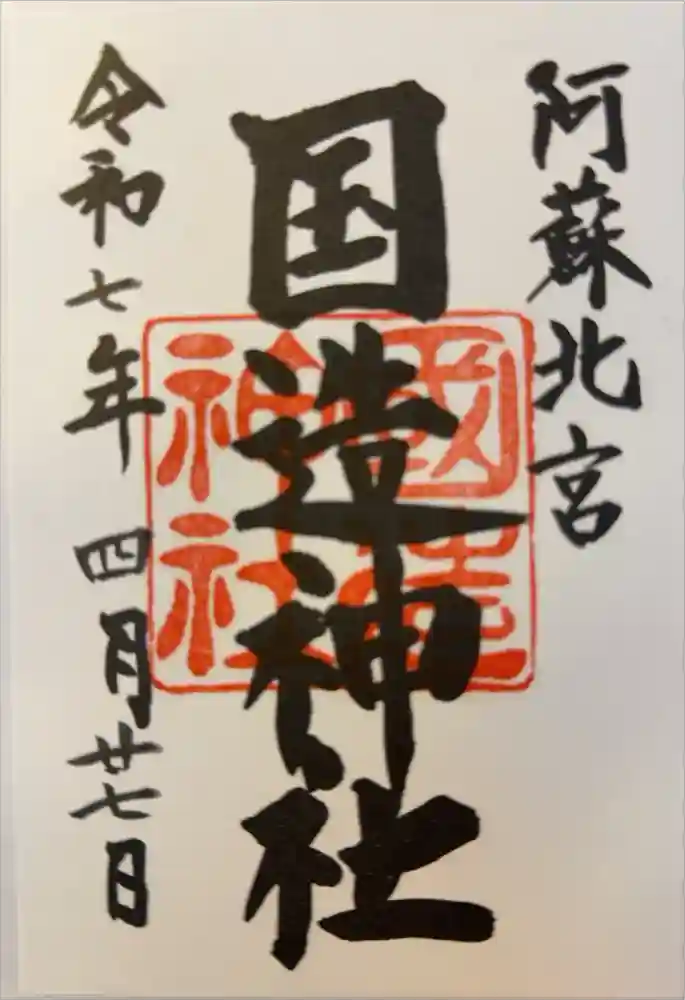 阿蘇北宮
国造神社
國造
神社
令和七年 四月廿七日